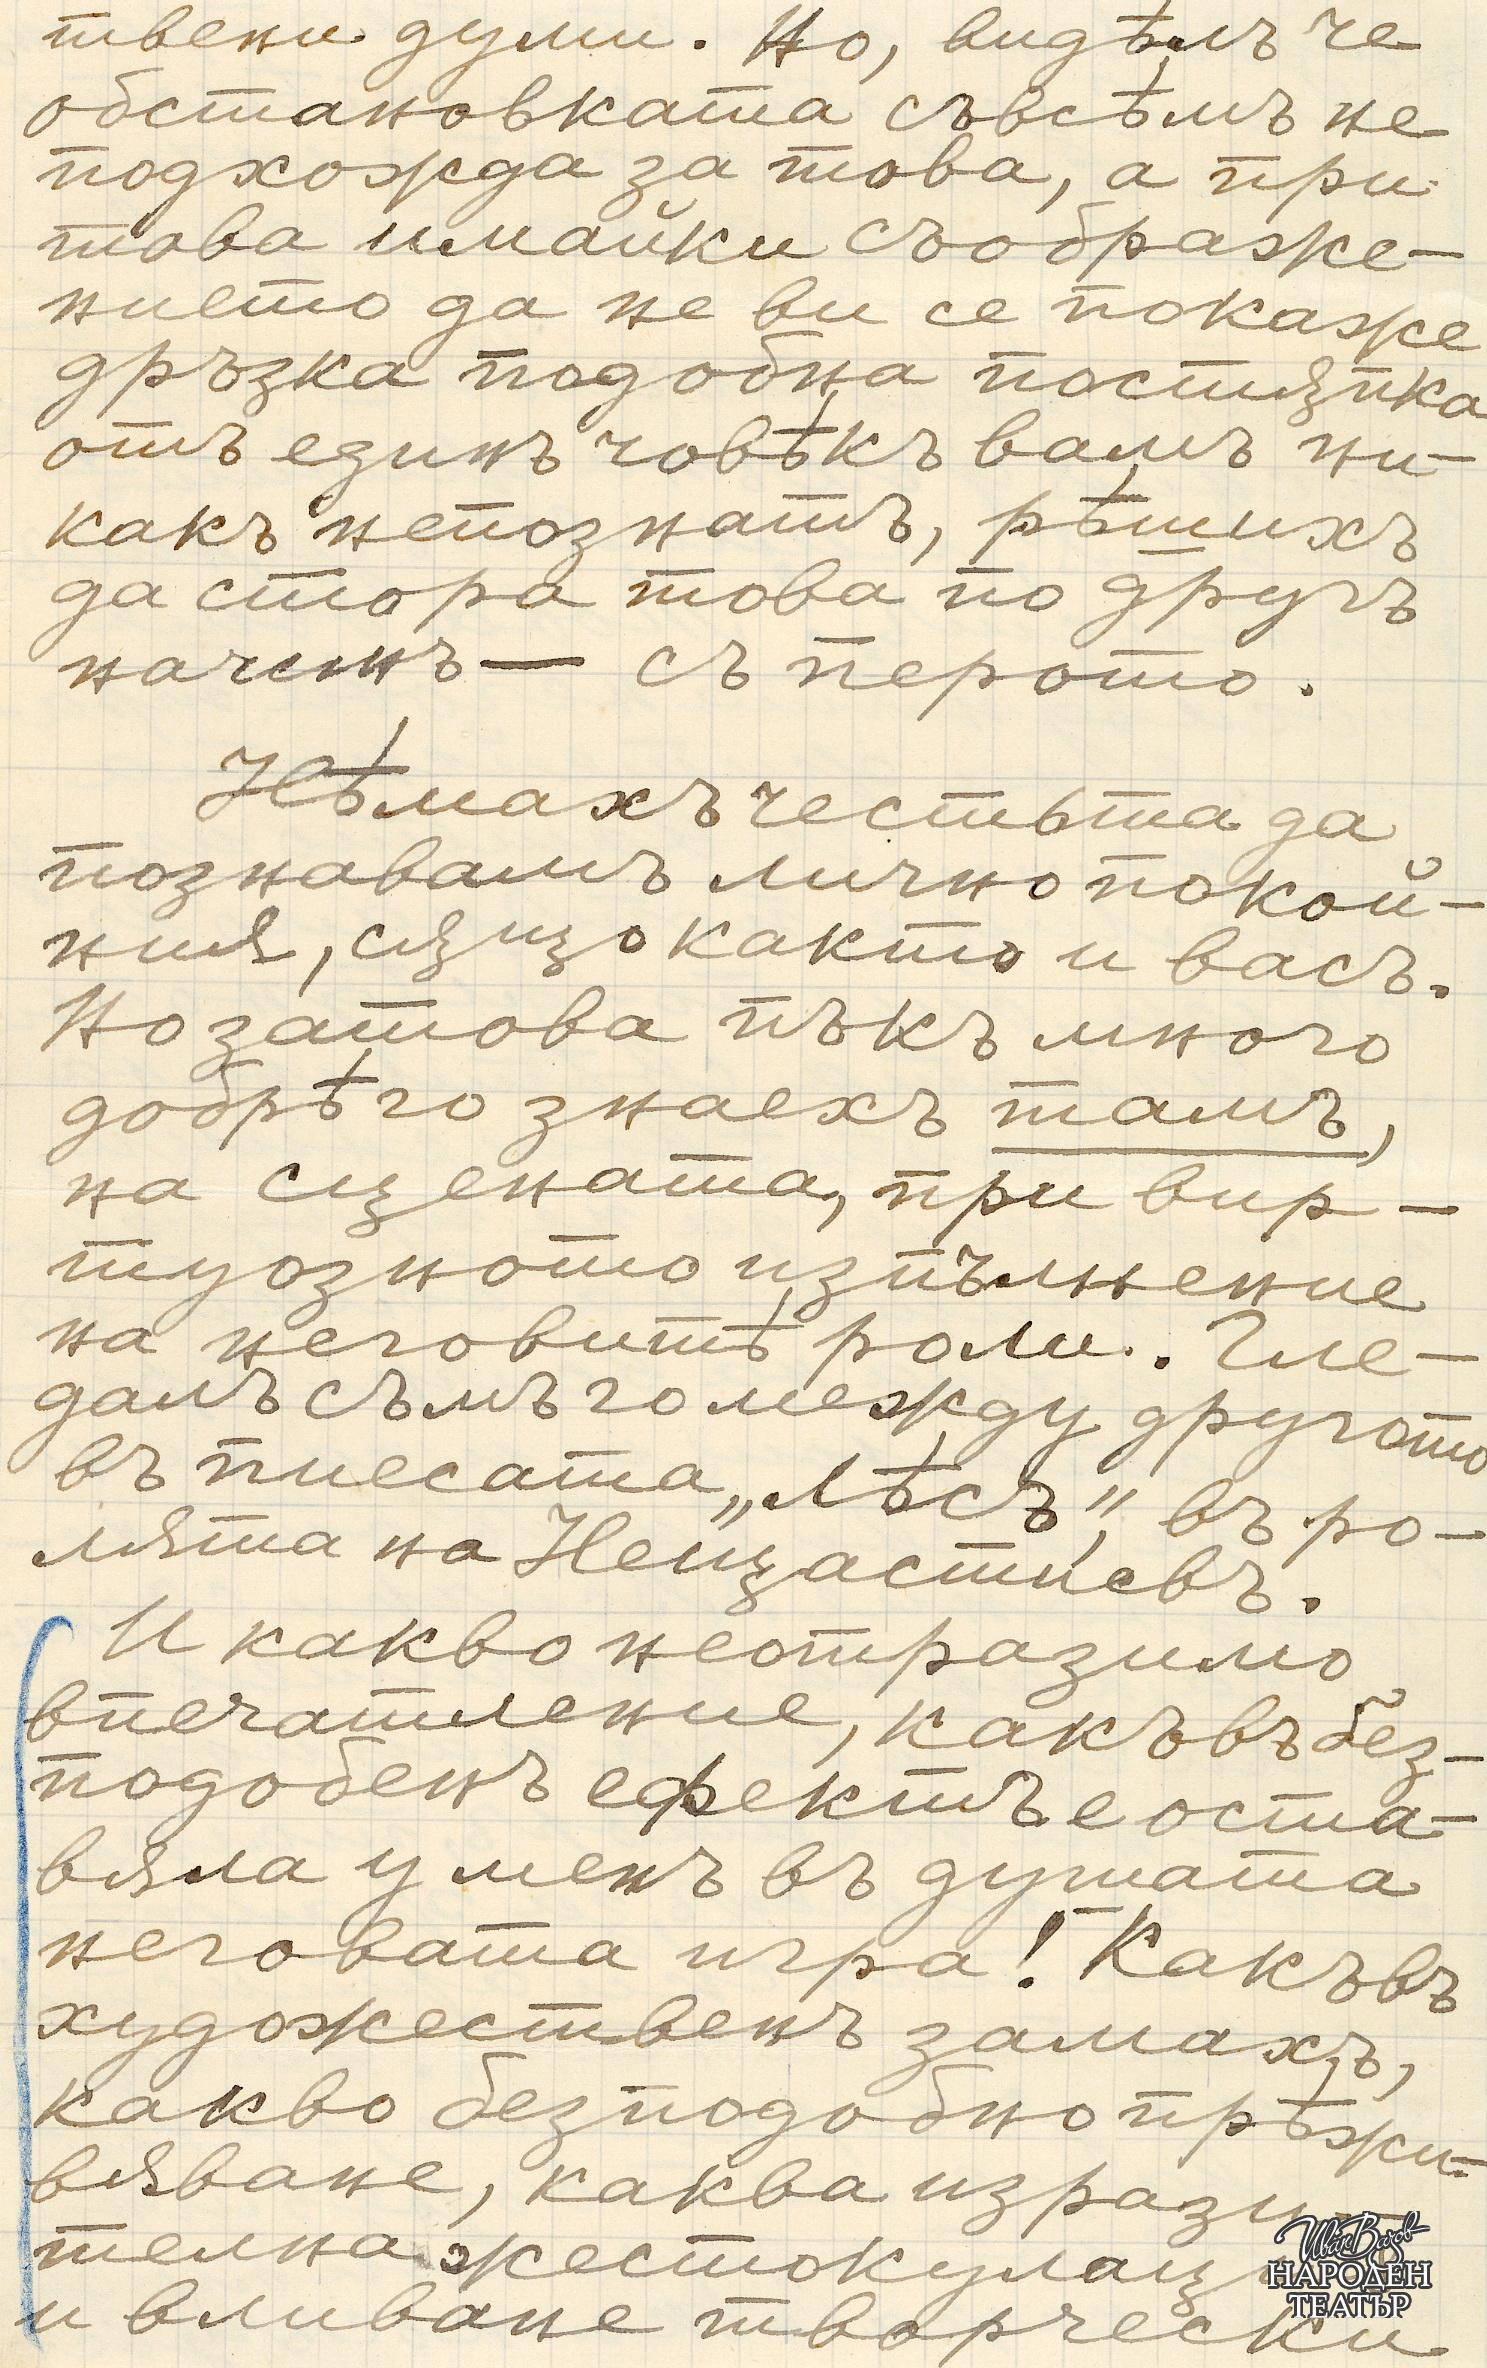 твени думи. Но, видѣлъ че
обстановката съвсѣмъ не
подхожда за това, а при
това имайки съображе-
нието да не ви се покаже
дръзка подобна постѫпка
отъ единъ човѣкъ вамъ ни-
какъ непознатъ, рѣшихъ
да сторя това по другъ
начинъ — съ перото.
Нѣмахъ честьта да
познавамъ лично покой-
ния, сѫщо както и васъ.
Но затова пъкъ много
добрѣ го знаехъ тамъ,
на сцената, при вир-
туозното изпълнение
на неговитѣ роли. Гле-
далъ съмъ го между другото
въ пиесата „Лѣсъ", въ ро-
лята на Нещастиевъ.
И какво неотразимо
впечатление, какъвъ без-
подобенъ ефектъ е оста-
вяла у менъ въ душата
неговата игра! Какъвъ
художественъ замахъ,
какво безподобно прѣжи-
вяване, каква изрази-
телна жестокулация
и вливане творчески
Иван Вазов
НАРОДЕН
ТЕАТЪР